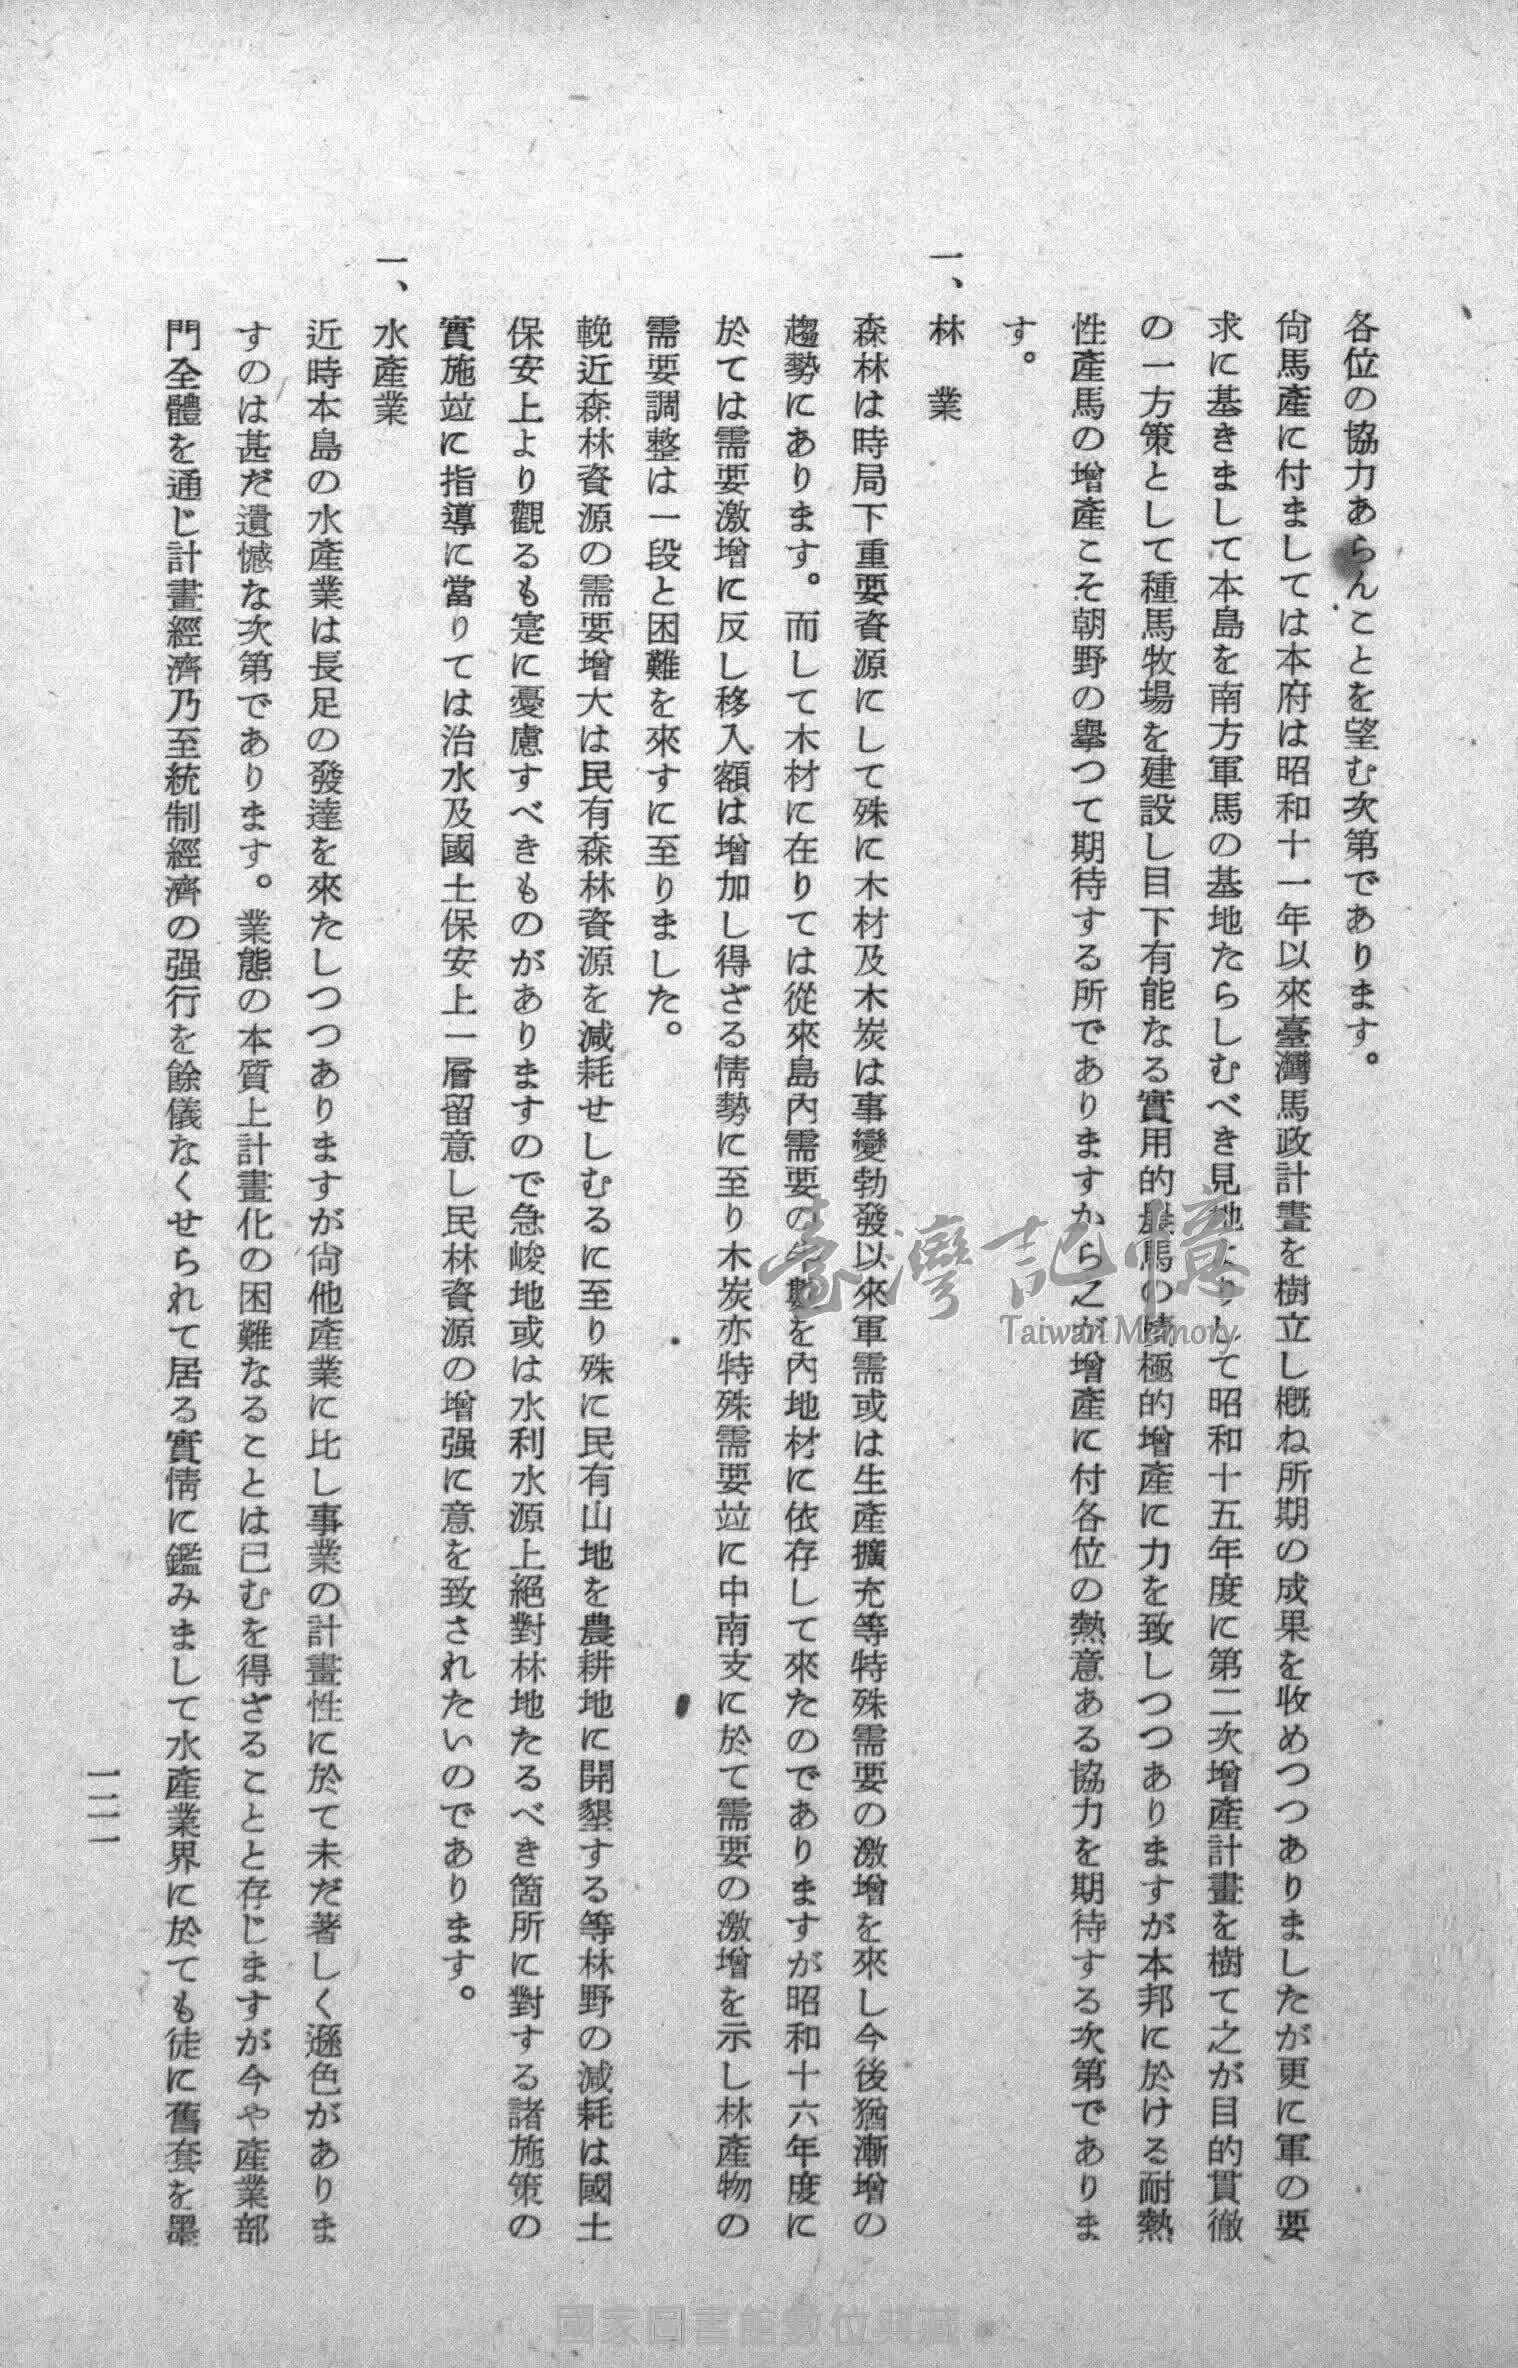 各位の協力あらんことを望む次第であります。
尙馬產に付ましては本府は昭和十一年以來臺灣馬政計畫を樹立し槪ね所期の成果を收めつつありましたが更に軍の要
求に基きまして本島を南方軍馬の基地たらしむべき見地よりして昭和十五年度に第二次增產計畫を樹て之が目的貫徹
の一方策として種馬牧場を建設し目下有能なる實用的農馬の積極的增產に力を致しつつありますが本邦に於ける耐熱
性產馬の增產こそ朝野の擧つて期待する所でありますから之が增產に付各位の熱意ある協力を期待する次第でありま
す。
一、林　業
森林は時局下重要資源にして殊に木材及木炭は事變勃發以來軍需或は生產擴充等特殊需要の激增を來し今後猶漸增の
趨勢にあります。而して木材に在りては從來島內需要の半數を內地材に依存して來たのでありますが昭和十六年度に
於ては需要激增に反し移入額は增加し得ざる情勢に至り木炭亦特殊需要竝に中南支に於て需要の激增を示し林產物の
需要調整は一段と困難を來すに至りました。
輓近森林資源の需要增大は民有森林資源を減耗せしむるに至り殊に民有山地を農耕地に開墾する等林野の減耗は國土
保安上より觀るも寔に憂慮すべきものがありますので急峻地或は水利水源上絕對林地たるべき箇所に對する諸施策の
實施竝に指導に當りては治水及國土保安上一層留意し民林資源の增强に意を致されたいのであります。
一、水產業
近時本島の水產業は長足の發達を來たしつつありますが尙他產業に比し事業の計畫性に於て未だ著しく遜色がありま
すのは甚だ遺憾な次第であります。業態の本質上計畫化の困難なることは已むを得ざることと存じますが今や產業部
門全體を通じ計畫經濟乃至統制經濟の强行を餘儀なくせられて居る實情に鑑みまして水產業界に於ても徒に舊套を墨
一二一
臺灣記憶
Taiwan Memory
國家圖書館數位典藏